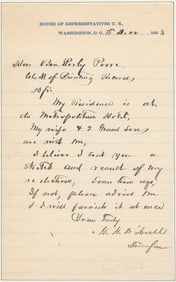 HOUSE OF REPRESENTATIVES U.S.,
WASHINGTON, D.C., Dec 1883
Hon Ben Perley Poore
Clerk of Printing Records
My Residence is at
the Metropolitan Hotel,
My wife & 2 Grand Sons
are with me,
I believe I sent you a
Sketch and result of my
elections, Some time ago,
If not, please advise me
& I will furnish it at once
Yours Truly